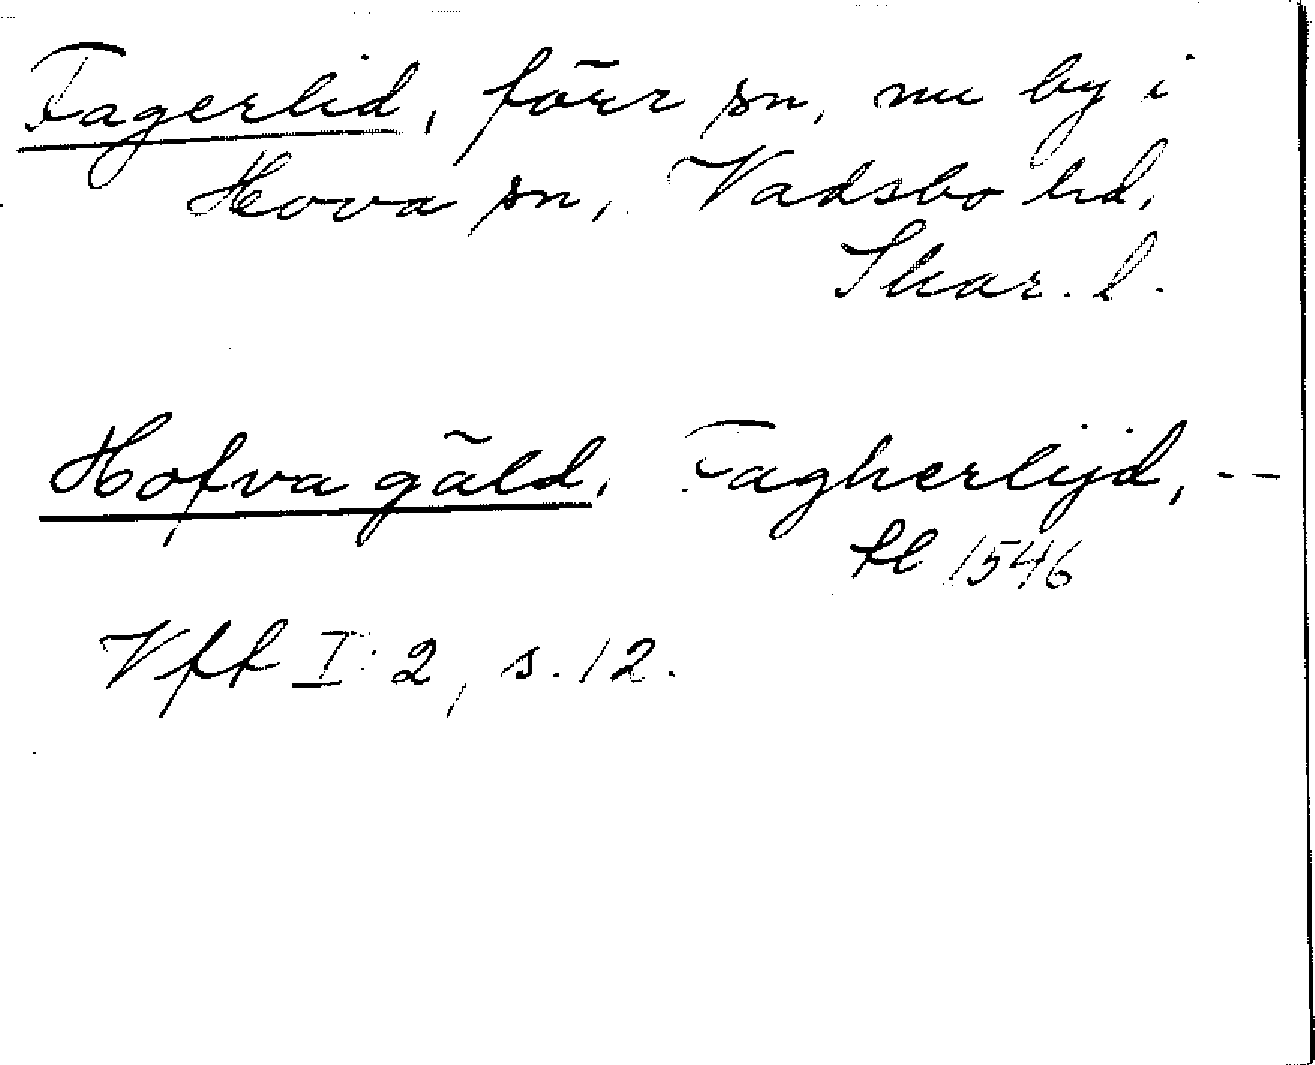 Fagerlid, förr sn, nu by i
Hova sn, Vadsbo hd,
Skar. l.
Hofva gäld. Fagherlijd, --
fl 1546
Vfft I: 2, s. 12.